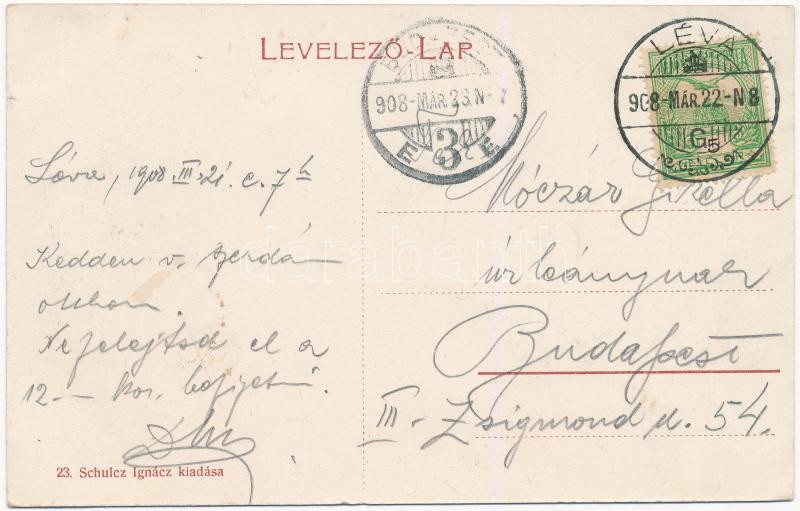 LEVELEZŐ-LAP
BUDAPEST
908-MÁR.23.N-7
3
E E
LÉVA
908-MÁR.22-N8
G5
Léva, 1908 III. 21. e. 7 h
Kedden v. szerdán
otthon.
Ne felejtsd el a
12 — kor. befizetni.
Móczár Gizella
úrleánynak
Budapest
III. Zsigmond u. 54.
23. Schulcz Ignácz kiadása
darabanth